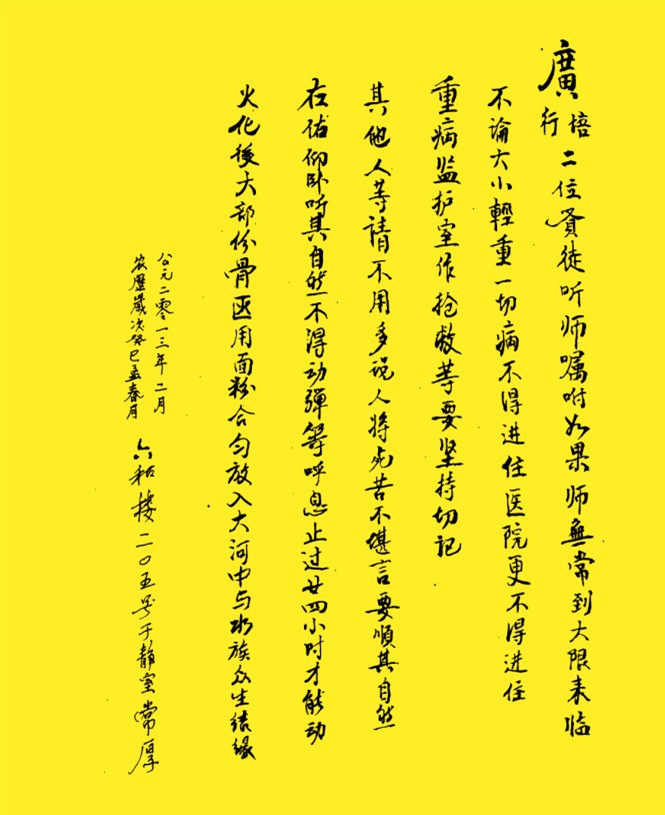 廣培行二位賢徒听师嘱咐如果师無常到大限来临
不論大小輕重一切病不得进住医院更不得进住
重病监护室作抢救等要坚持切记
其他人等請不用多说人将死苦不堪言要順其自然
在佑仰卧听其自然不得动彈等呼息止过廿四小时才能动
火化後大部份骨灰用面粉合匀放入大河中与水族众生结缘
公元二零一三年二月
农歷歲次癸巳孟春月
六和楼二〇五号于静室常厚